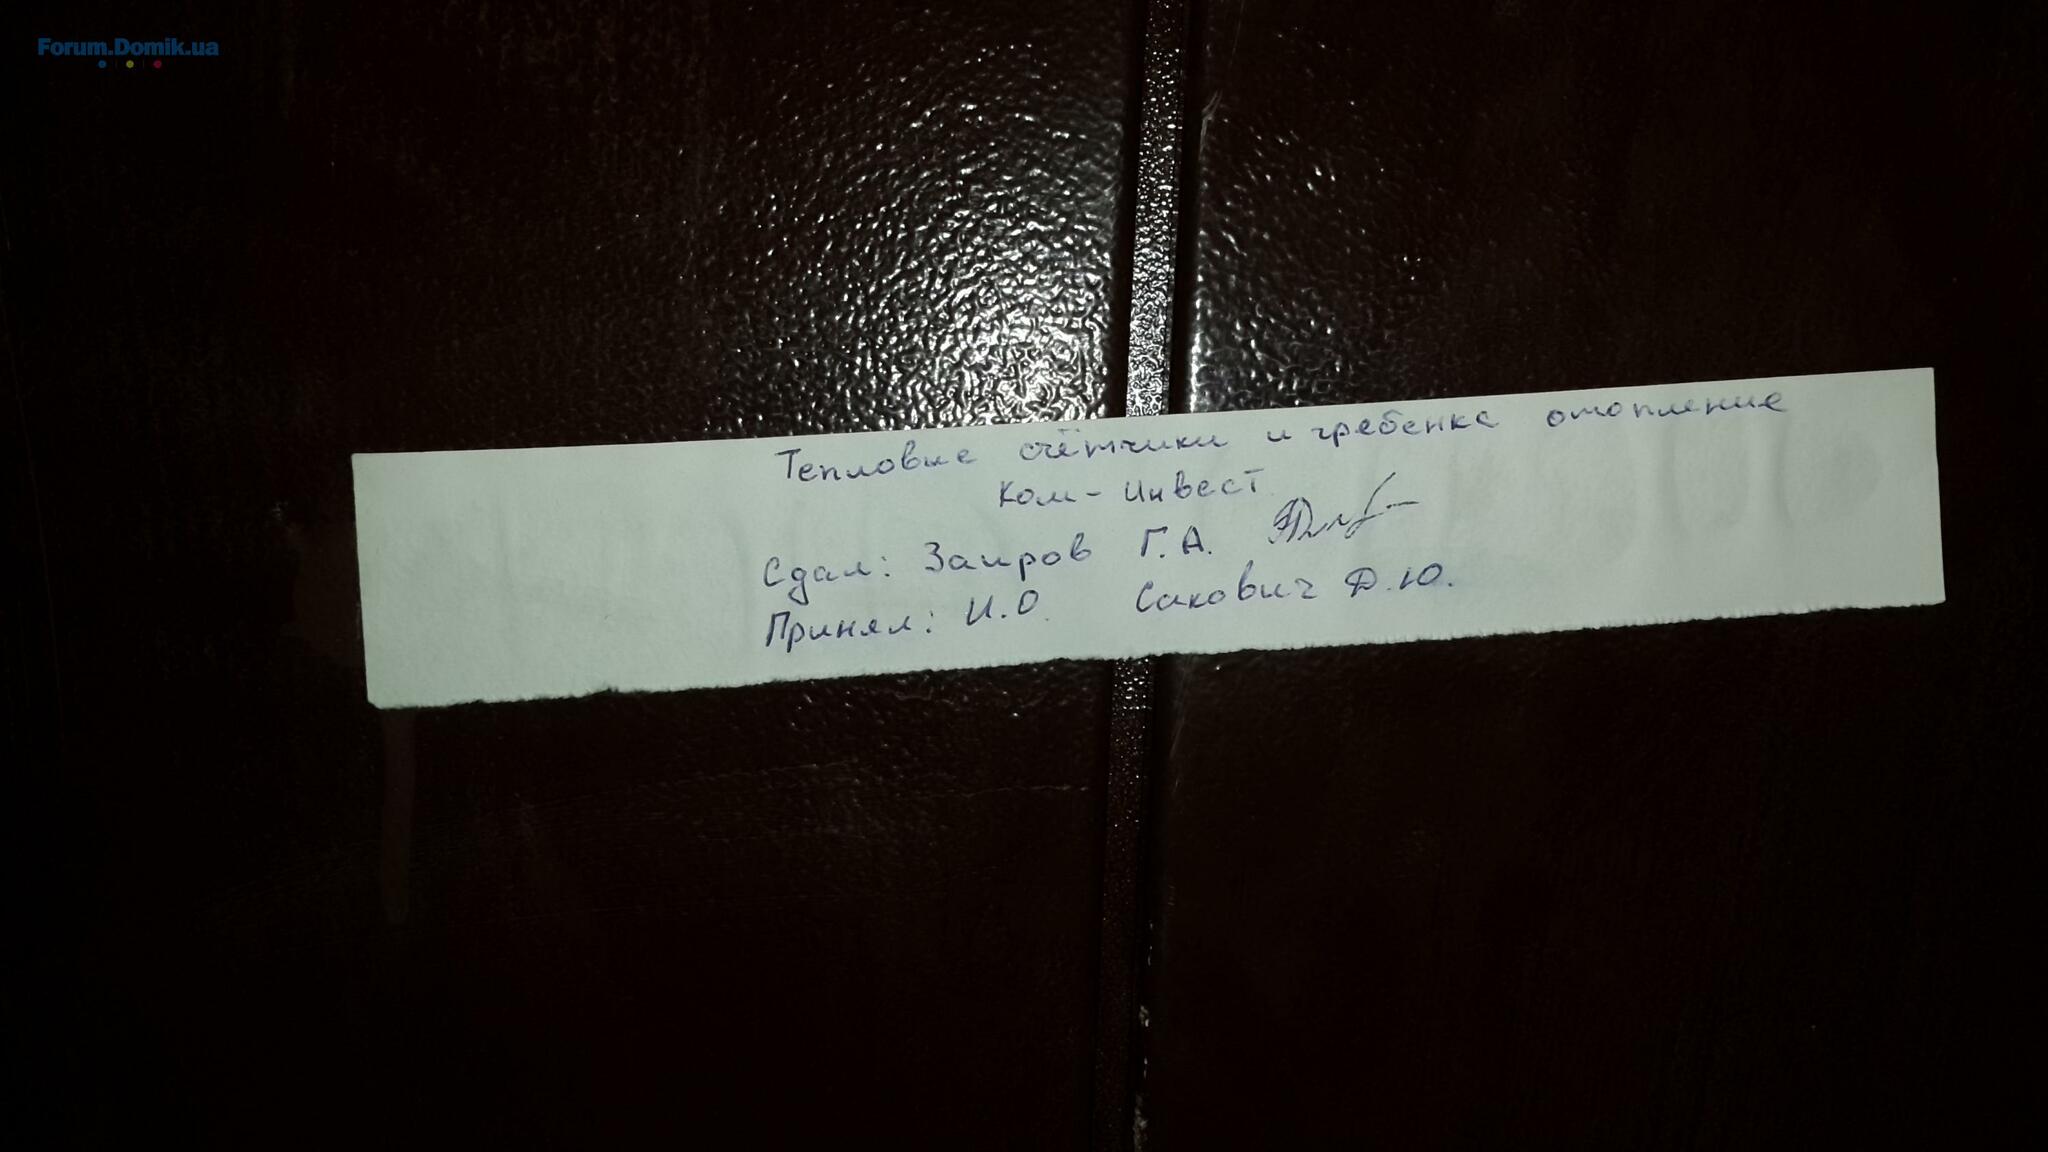 Forum.Domik.ua
Тепловые счётчики и гребенка отопление
Ком-Инвест
Сдал: Заиров Г.А.
Принял: И.О. Сакович Д.Ю.